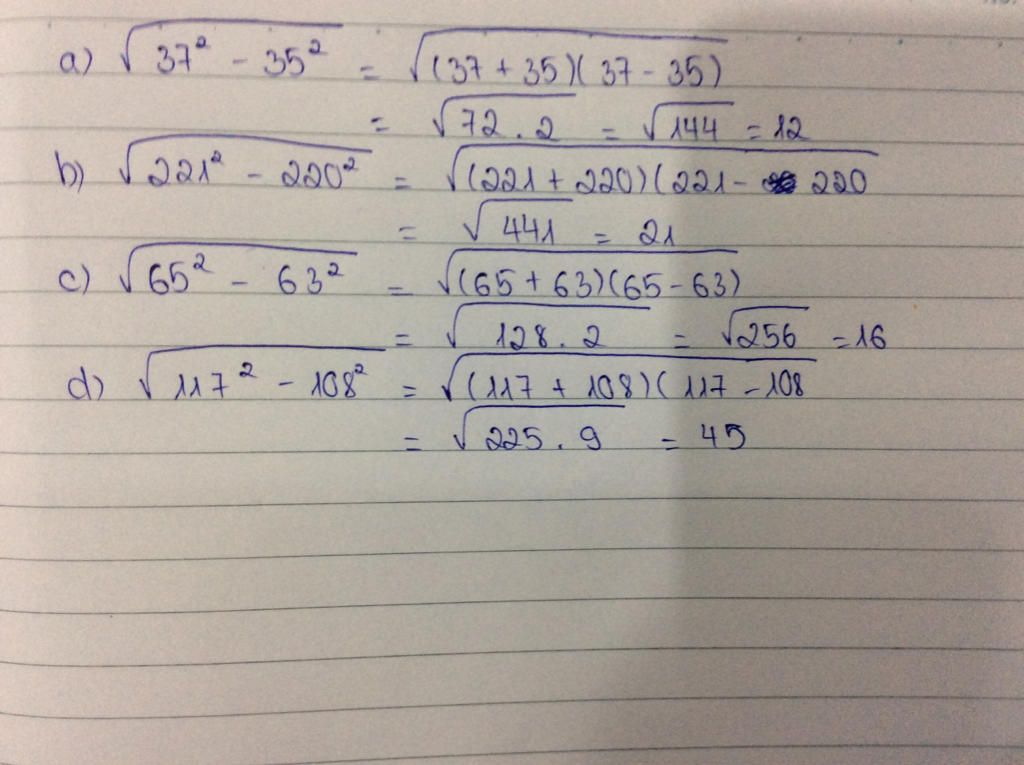 a) √37² - 35² = √(37 + 35)(37 - 35)
= √72 . 2 = √144 = 12
b) √221² - 220² = √(221 + 220)(221 - 220
= √441 = 21
c) √65² - 63² = √(65 + 63)(65 - 63)
= √128 . 2 = √256 = 16
d) √117² - 108² = √(117 + 108)(117 - 108
= √225 . 9 = 45